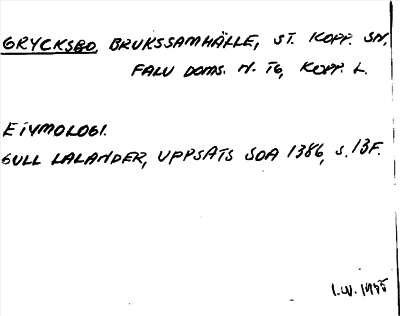 GRYCKSBO, BRUKSSAMHÄLLE, ST. KOPP. SN,
FALU DOMS. N. TG, KOPP. L.
ETYMOLOGI.
GULL LALANDER, UPPSATS SOA 1386, S. 13F.
I.W. 1975